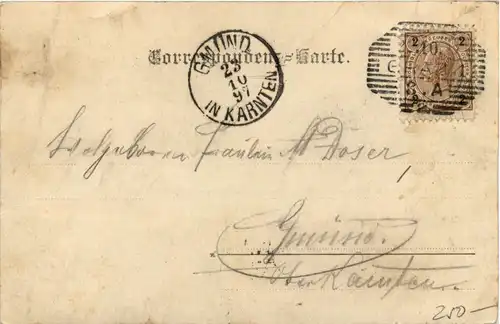 Correspondenz-Karte.
GMÜND
23
10
97
IN KÄRNTEN
2 2
10
A
Wolgeboren Fräulein M Moser,
Gmünd.
Ober Kärnten.
250-